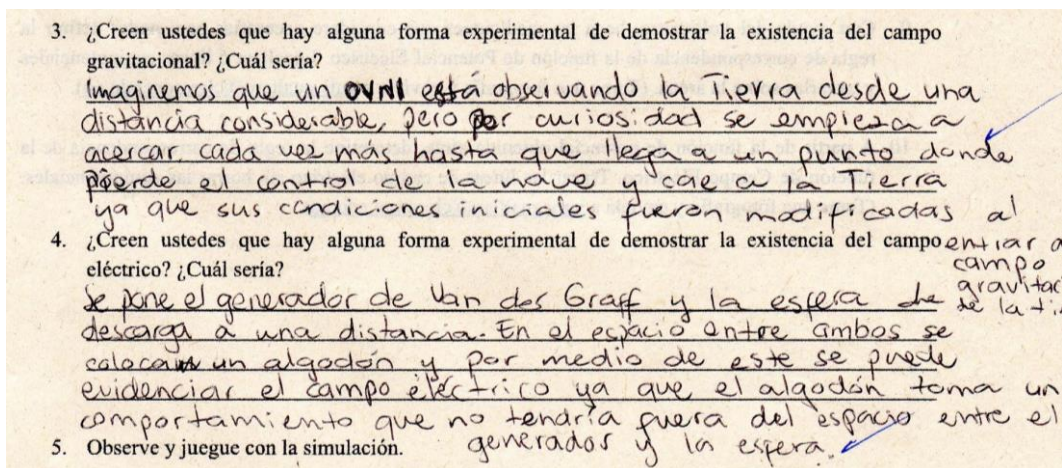 3. ¿Creen ustedes que hay alguna forma experimental de demostrar la existencia del campo
gravitacional? ¿Cuál sería?
Imaginemos que un OVNI está observando la Tierra desde una
distancia considerable, pero por curiosidad se empieza a
acercar cada vez más hasta que llega a un punto donde
pierde el control de la nave y cae a la tierra
ya que sus condiciones iniciales fueron modificadas al
entrar al
campo
gravitac
de la ti
4. ¿Creen ustedes que hay alguna forma experimental de demostrar la existencia del campo
eléctrico? ¿Cuál sería?
Se pone el generador de Van des Graff y la esfera de
descarga a una distancia. En el espacio entre ambos se
colocan un algodón y por medio de este se puede
evidenciar el campo eléctrico ya que el algodón toma un
comportamiento que no tendría fuera del espacio entre el
generador y la esfera.
5. Observe y juegue con la simulación.